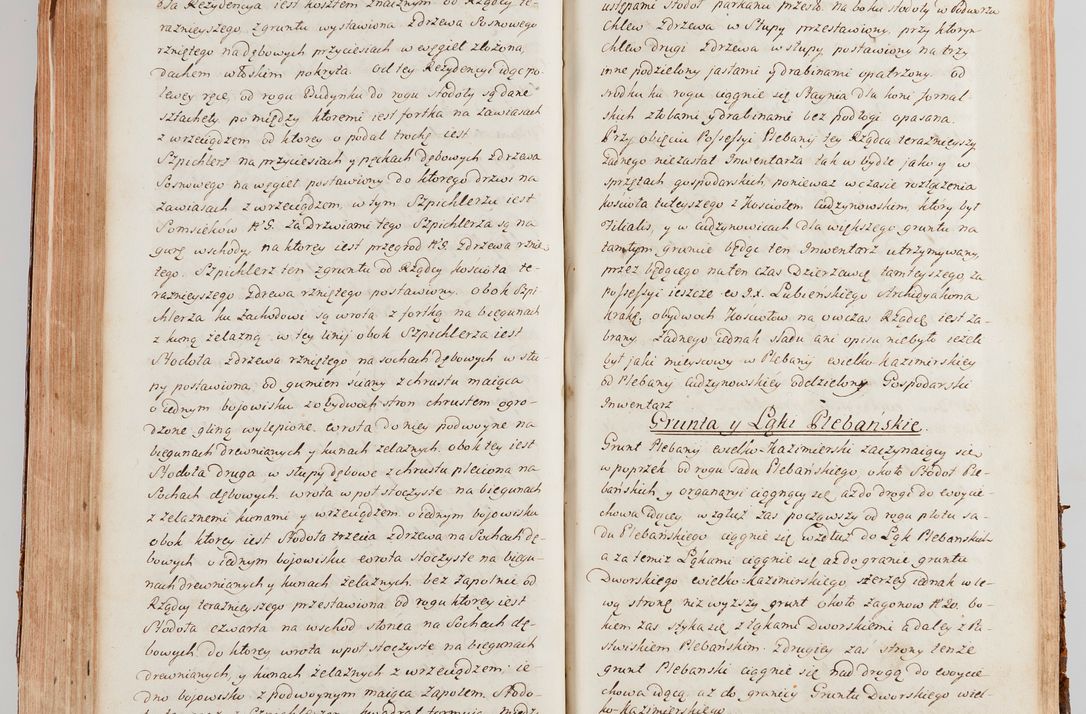 ᴀta Rezydencya iest kosztem znacznym od Rządcy te-
raznieyszego z gruntu wystawiona zdrzewa Sosnowego
rzniętego na dębowych przyciesiach w węgieł złożona,
dachem włoskim pokryta. Od tey Rezydencyi idąc po
lewey ręce, od rogu Budynku do rogu stodoły są dane
sztachety, pomiędzy ktoremi iest fortka na zawiasach
z wrzeciądzem od ktorey o podal trochę iest
Szpichlerz na przyciesiach y pęckach dębowych zdrzewa
Sosnowego na węgieł postawiony do ktorego drzwi na
zawiasach z wrzeciądzem, w tym Szpichlerzu iest
Somsiekow N 6. Za drzwiami tego Szpichlerza są na
gurę wschody, na ktorey iest przegrod N 6. zdrzewa rznię
tego. Szpichlerz ten z gruntu od Rządcy kościoła te-
raznieyszego zdrewa rzniętego postawiony. obok Szpi
chlerza ku zachodowi są wrota z fortką na biegunach
z kuną żelazną. w tey linij obok Szpichlerza iest
Stodoła zdrzewa rzniętego na sochach dębowych w stu-
py postawiona, od gumien ściany z chrustu maiąca
o iednym bojowisku z obydwoch stron chrustem ogro-
dzone gliną wylepione. wrota do niey podwoyne na
biegunach drewnianych y kunach żelaznych. obok tey iest
Stodoła druga w stupy dębowe z chrustu pleciona na
Sochach dębowych. wrota wpoł stoczyste na biegunach
z żelaznemi kunami y wrzeciądzem o iednym bojowisku
obok ktorey iest Stodoła trzecia zdrzewa na Sochach dę-
bowych o iednym bojowisku wrota stoczyste na biegu-
nach drewnianych y kunach żelaznych, bez zapolnic od
Rządcy teraznieyszego przestawiona. od rogu ktorey iest
Stodoła czwarta na wschod słonca na Sochach dę-
bowych. do ktorey wrota wpoł stoczyste na biegunach
drewnianych, y kunach żelaznych z wrzeciądzem; ie-
dno bojowisko z podwoynym maiąca zapolem. Stodo-
ustępami Stodoł parkanu przęsło. na boku stodoły w Podworzu
Chlew zdrzewa w Stupy przestawiony, przy ktorym
Chlew drugi zdrzewa w stupy postawiony na trzy
inne podzielony jasłami y drabinami opatrzony. od
srodku ku rogu ciągnie się Staynia dla koni fornal-
skich złobami y drabinami bez podłogi opasana.
Przy obięciu Possessyi Plebanij tey Rządca teraznieyszy
żadnego niezastał Inwentarza tak w bydle jako y w
sprzętach gospodarskich, ponieważ w czasie rozłączenia
kosciota tuteyszego z kosciołem Cudzynowskiem, ktory był
Filialis, y w Cudzynowicach dla większego gruntu na
tamtym gruncie będąc ten Inwentarz utrzymywany,
przez będącego na ten czas Dzierzawcę tamteyszego, za
Possessyi ieszcze ew J.X. Łubienskiego Archidyakona
krakº obydwoch kosciołow na owczas Rządcę iest za-
brany. żadnego iednak sladu ani opisu niebyło ieżeli
był jaki mieyscowy w Plebanij wielko-kazimirskiey
od Plebanij Cudzynowskiéy oddzielony Gospodarski
Inwentarz
Grunta y Łąki Plebańskie.
Grunt Plebanij wielko-kazimierski zaczynaiący się
w poprzek od rogu Sadu Plebańskiego, około Stodoł Ple-
bańskich, y organaryi ciągnący się aż do drogi do woycie-
chowa idącey. wzgłuż zas począwszy od rogu płotu sa-
du Plebańskiego ciągnie się wzdłuż do Łąk Plebanskich
a za temiż Łąkami ciągnie się aż do granic gruntu
Dworskiego wielko-kazimirskiego, szerzey iednak w le-
wą stronę niż wyższy grunt około zagonow N 20. bo-
kiem zas styka się z łąkami Dworskiemi a daley z Pa-
stwiskiem Plebańskim. z drugiey zas strony tenże
grunt Plebanski ciągnie się nad drogą do woycie-
chowa idącą, aż do granicy Gruntu Dworskiego wiel-
ko-kazimirskiego